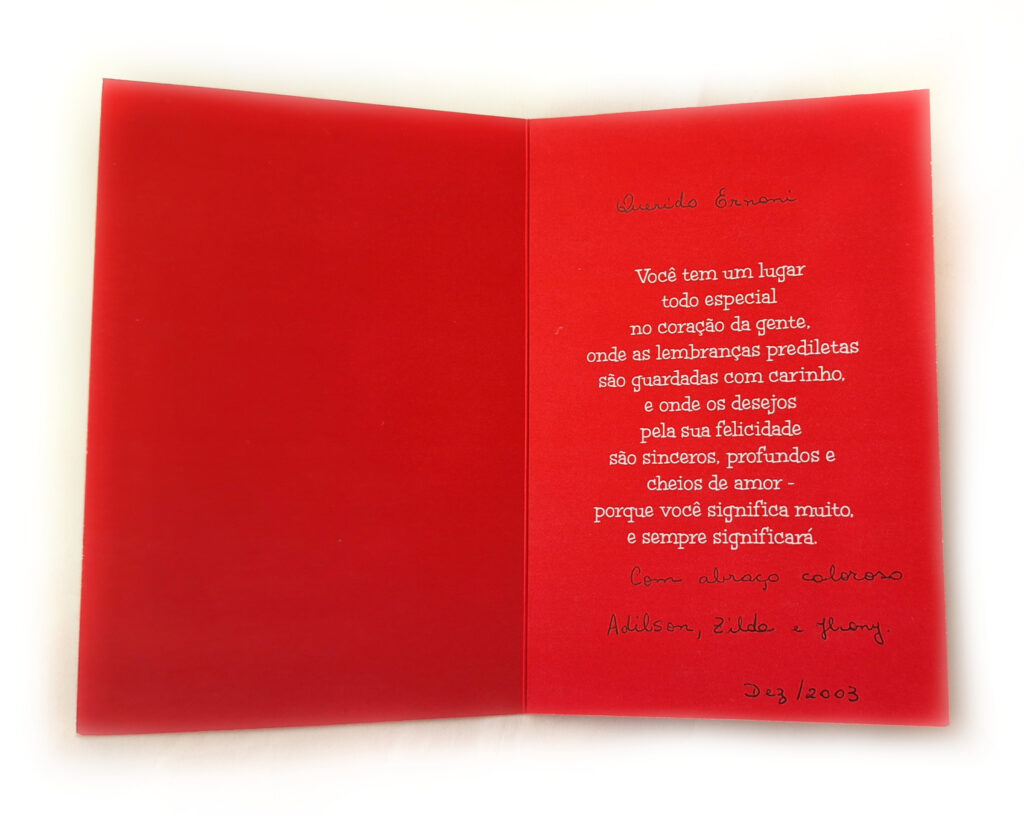 Querido Ernani
Você tem um lugar
todo especial
no coração da gente,
onde as lembranças prediletas
são guardadas com carinho,
e onde os desejos
pela sua felicidade
são sinceros, profundos e
cheios de amor -
porque você significa muito,
e sempre significará.
Com abraço caloroso
Adilson, Zilda e Jhony.
Dez /2003